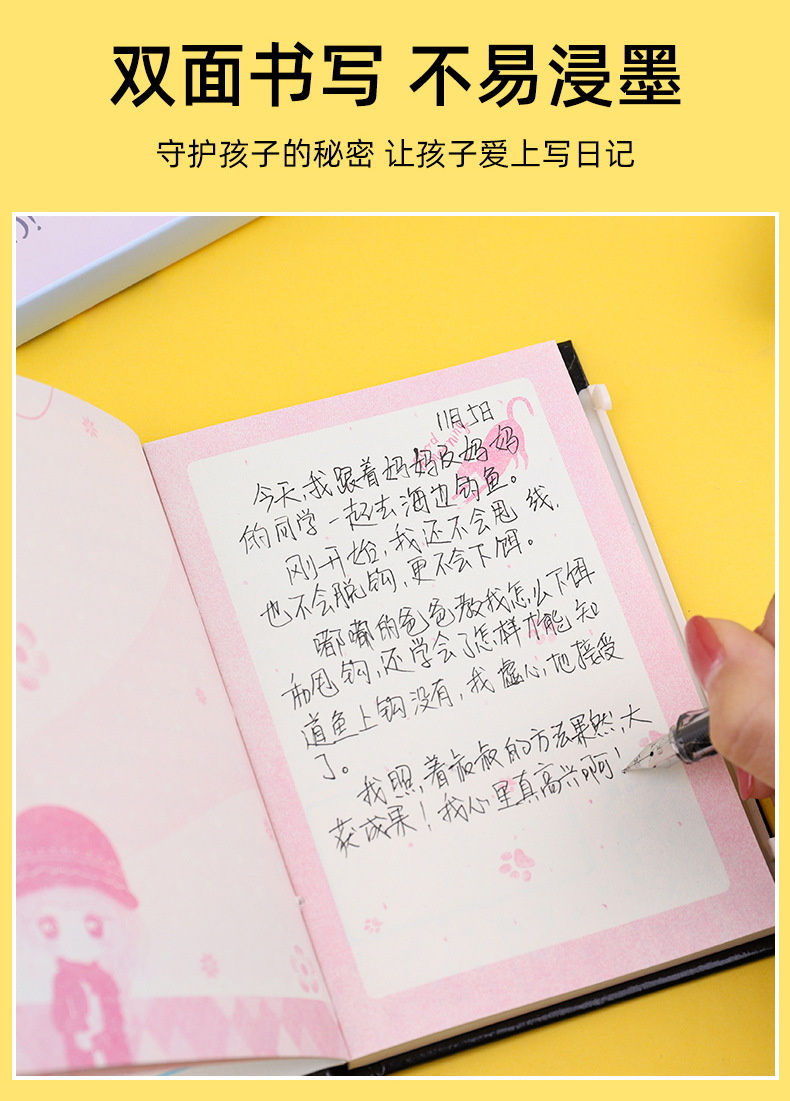 双面书写 不易浸墨
守护孩子的秘密 让孩子爱上写日记
11月5日
今天,我跟着妈妈及妈妈
的同学一起去海边钓鱼。
刚开始,我还不会甩线,
也不会脱钩,更不会下饵。
嘟嘟的爸爸教我怎么下饵
和甩钩,还学会了怎样才能知
道鱼上钩没有,我虚心地接受
了。
我照着叔叔的方法果然,大
获成果!我心里真高兴啊!